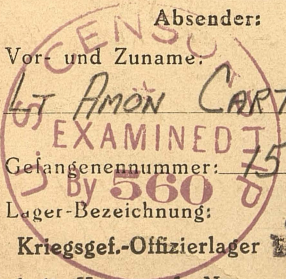 Absender:
Vor- und Zuname:
LT AMON CART
Gefangenennummer: 15
Lager-Bezeichnung:
Kriegsgef.-Offizierlager
U.S. CENSO
EXAMINED
By 560